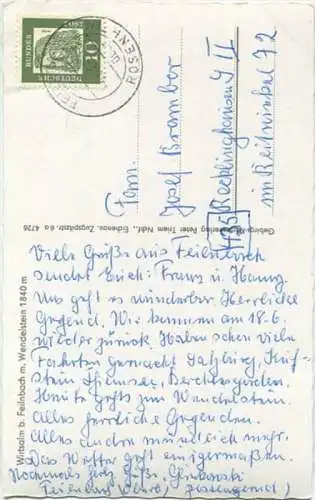 DEUTSCHE
BUNDES
POST
10
ROSENH
Fam.
Josef Brambor
4355 Recklinghausen II
im Reitwinkel 72
Gebirgs- Peter Triem Nchf., Eichenau, Zugspitzstr. 6a 4726
Wirtsalm b. Feilnbach m. Wendelstein 1840 m
Viele Grüße aus Feilnbach
sendet Euch: Franz u. Hanny.
Uns geht es wunderbar Herrliche
Gegend. Wir kommen am 18-6.
wieder zurück. Haben schon viele
Fahrten gemacht Salzburg, Kuf-
stein Chiemsee, Berchtesgaden.
Heute gehts zum Wendelstein.
Alles herrliche Gegenden.
Alles andere mündlich mehr.
Das Wetter geht einigermaßen.
Nochmals Grüße